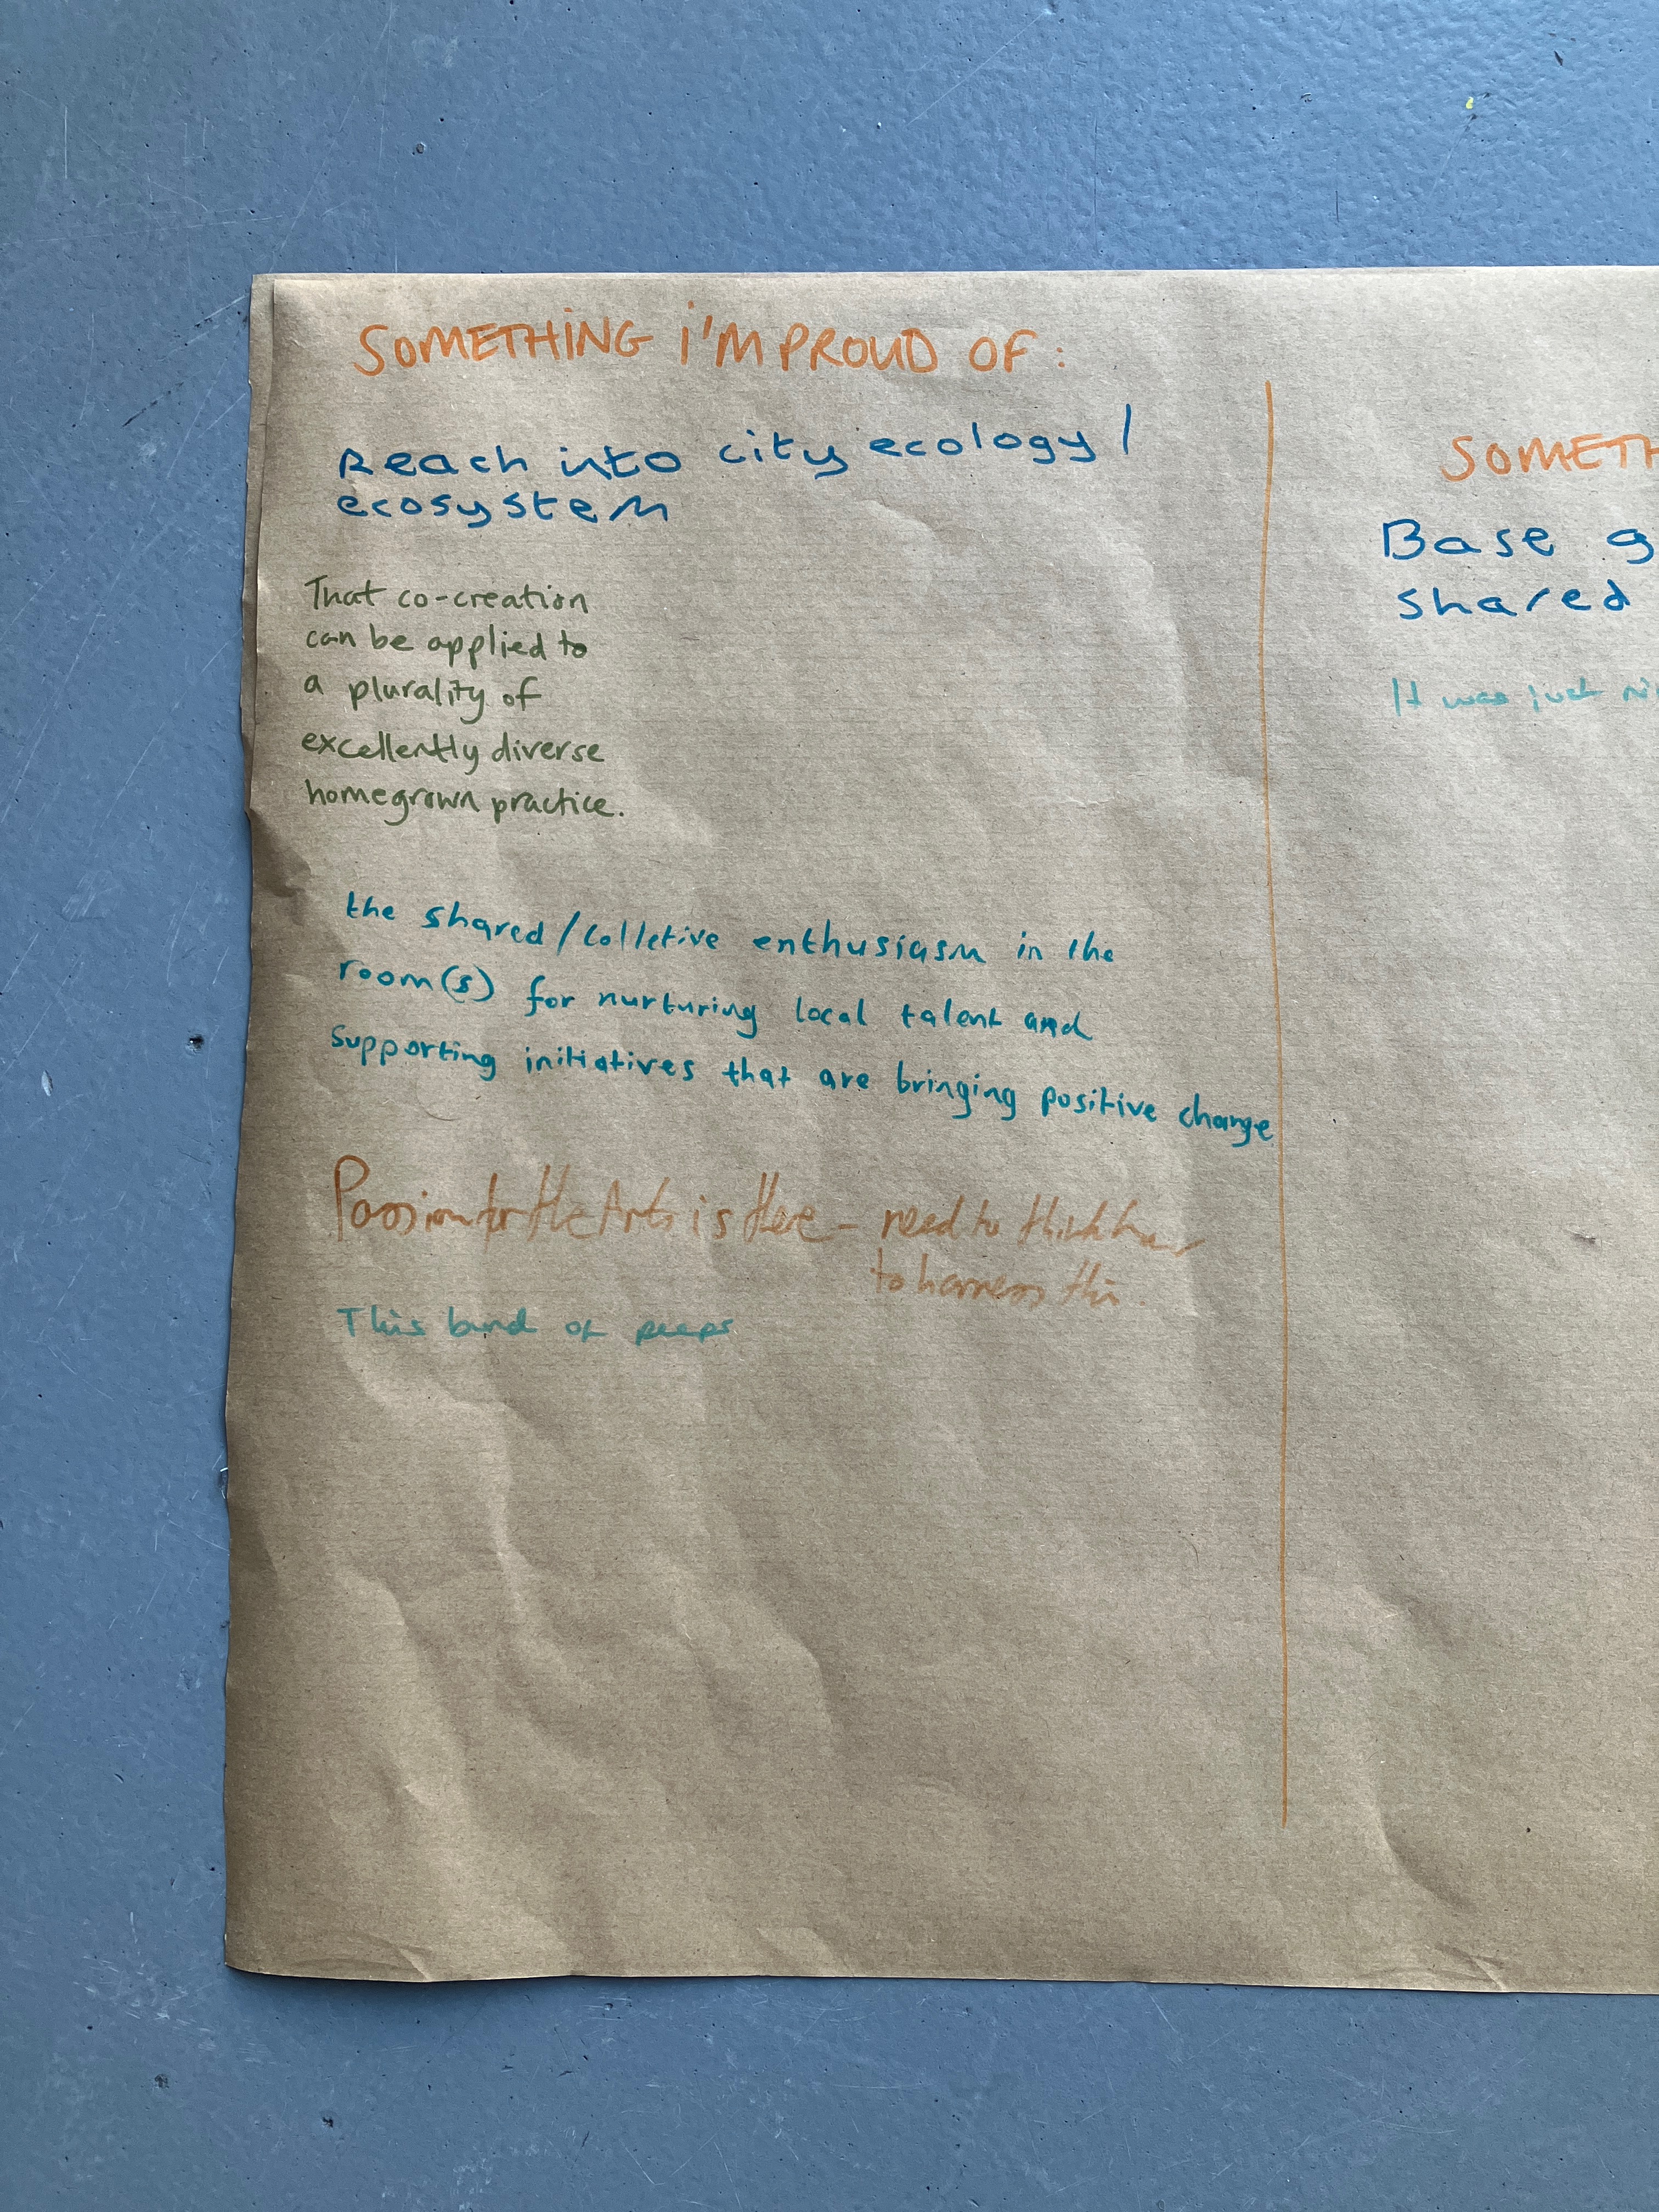 SOMETHING I'M PROUD OF:
Reach into city ecology /
ecosystem
That co-creation
can be applied to
a plurality of
excellently diverse
homegrown practice.
the shared/colletive enthusiasm in the
room(s) for nurturing local talent and
supporting initiatives that are bringing positive change
Passion for the Arts is there - need to think how
to harness this.
This band of peeps
SOMETH
Base g
shared
It was just